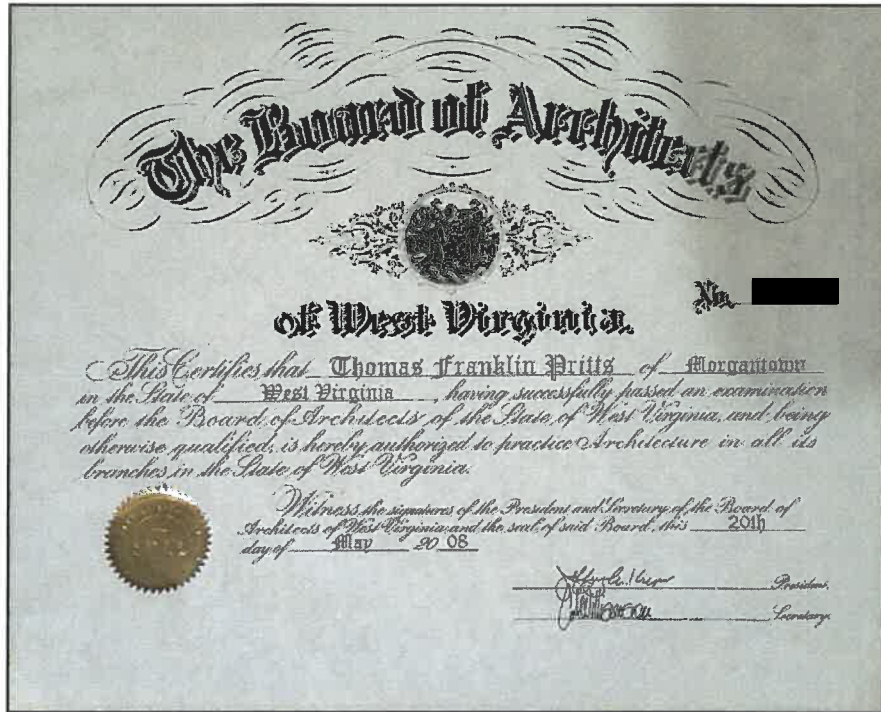 The Board of Architects
of West Virginia.
No.
This Certifies that Thomas Franklin Pritts of Morgantown
in the State of West Virginia, having successfully passed an examination
before the Board of Architects of the State of West Virginia, and being
otherwise qualified, is hereby authorized to practice Architecture in all its
branches in the State of West Virginia.
Witness the signatures of the President and Secretary of the Board of
Architects of West Virginia and the seal of said Board, this 20th
day of May 20 08
President.
Secretary.